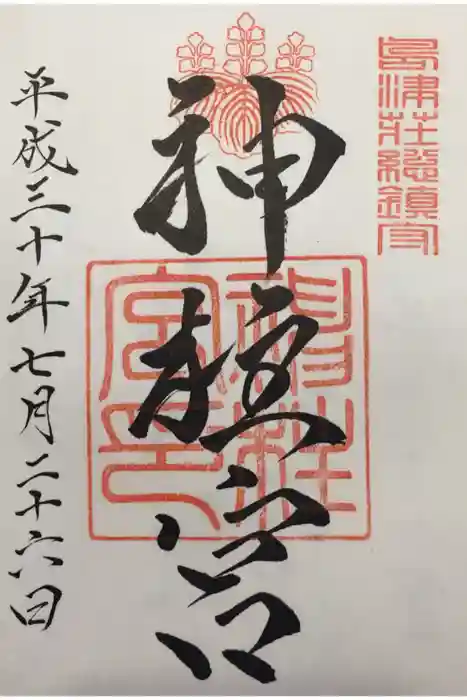 島津荘總鎮守
神柱宮
神柱
宮印
平成三十年七月二十六日